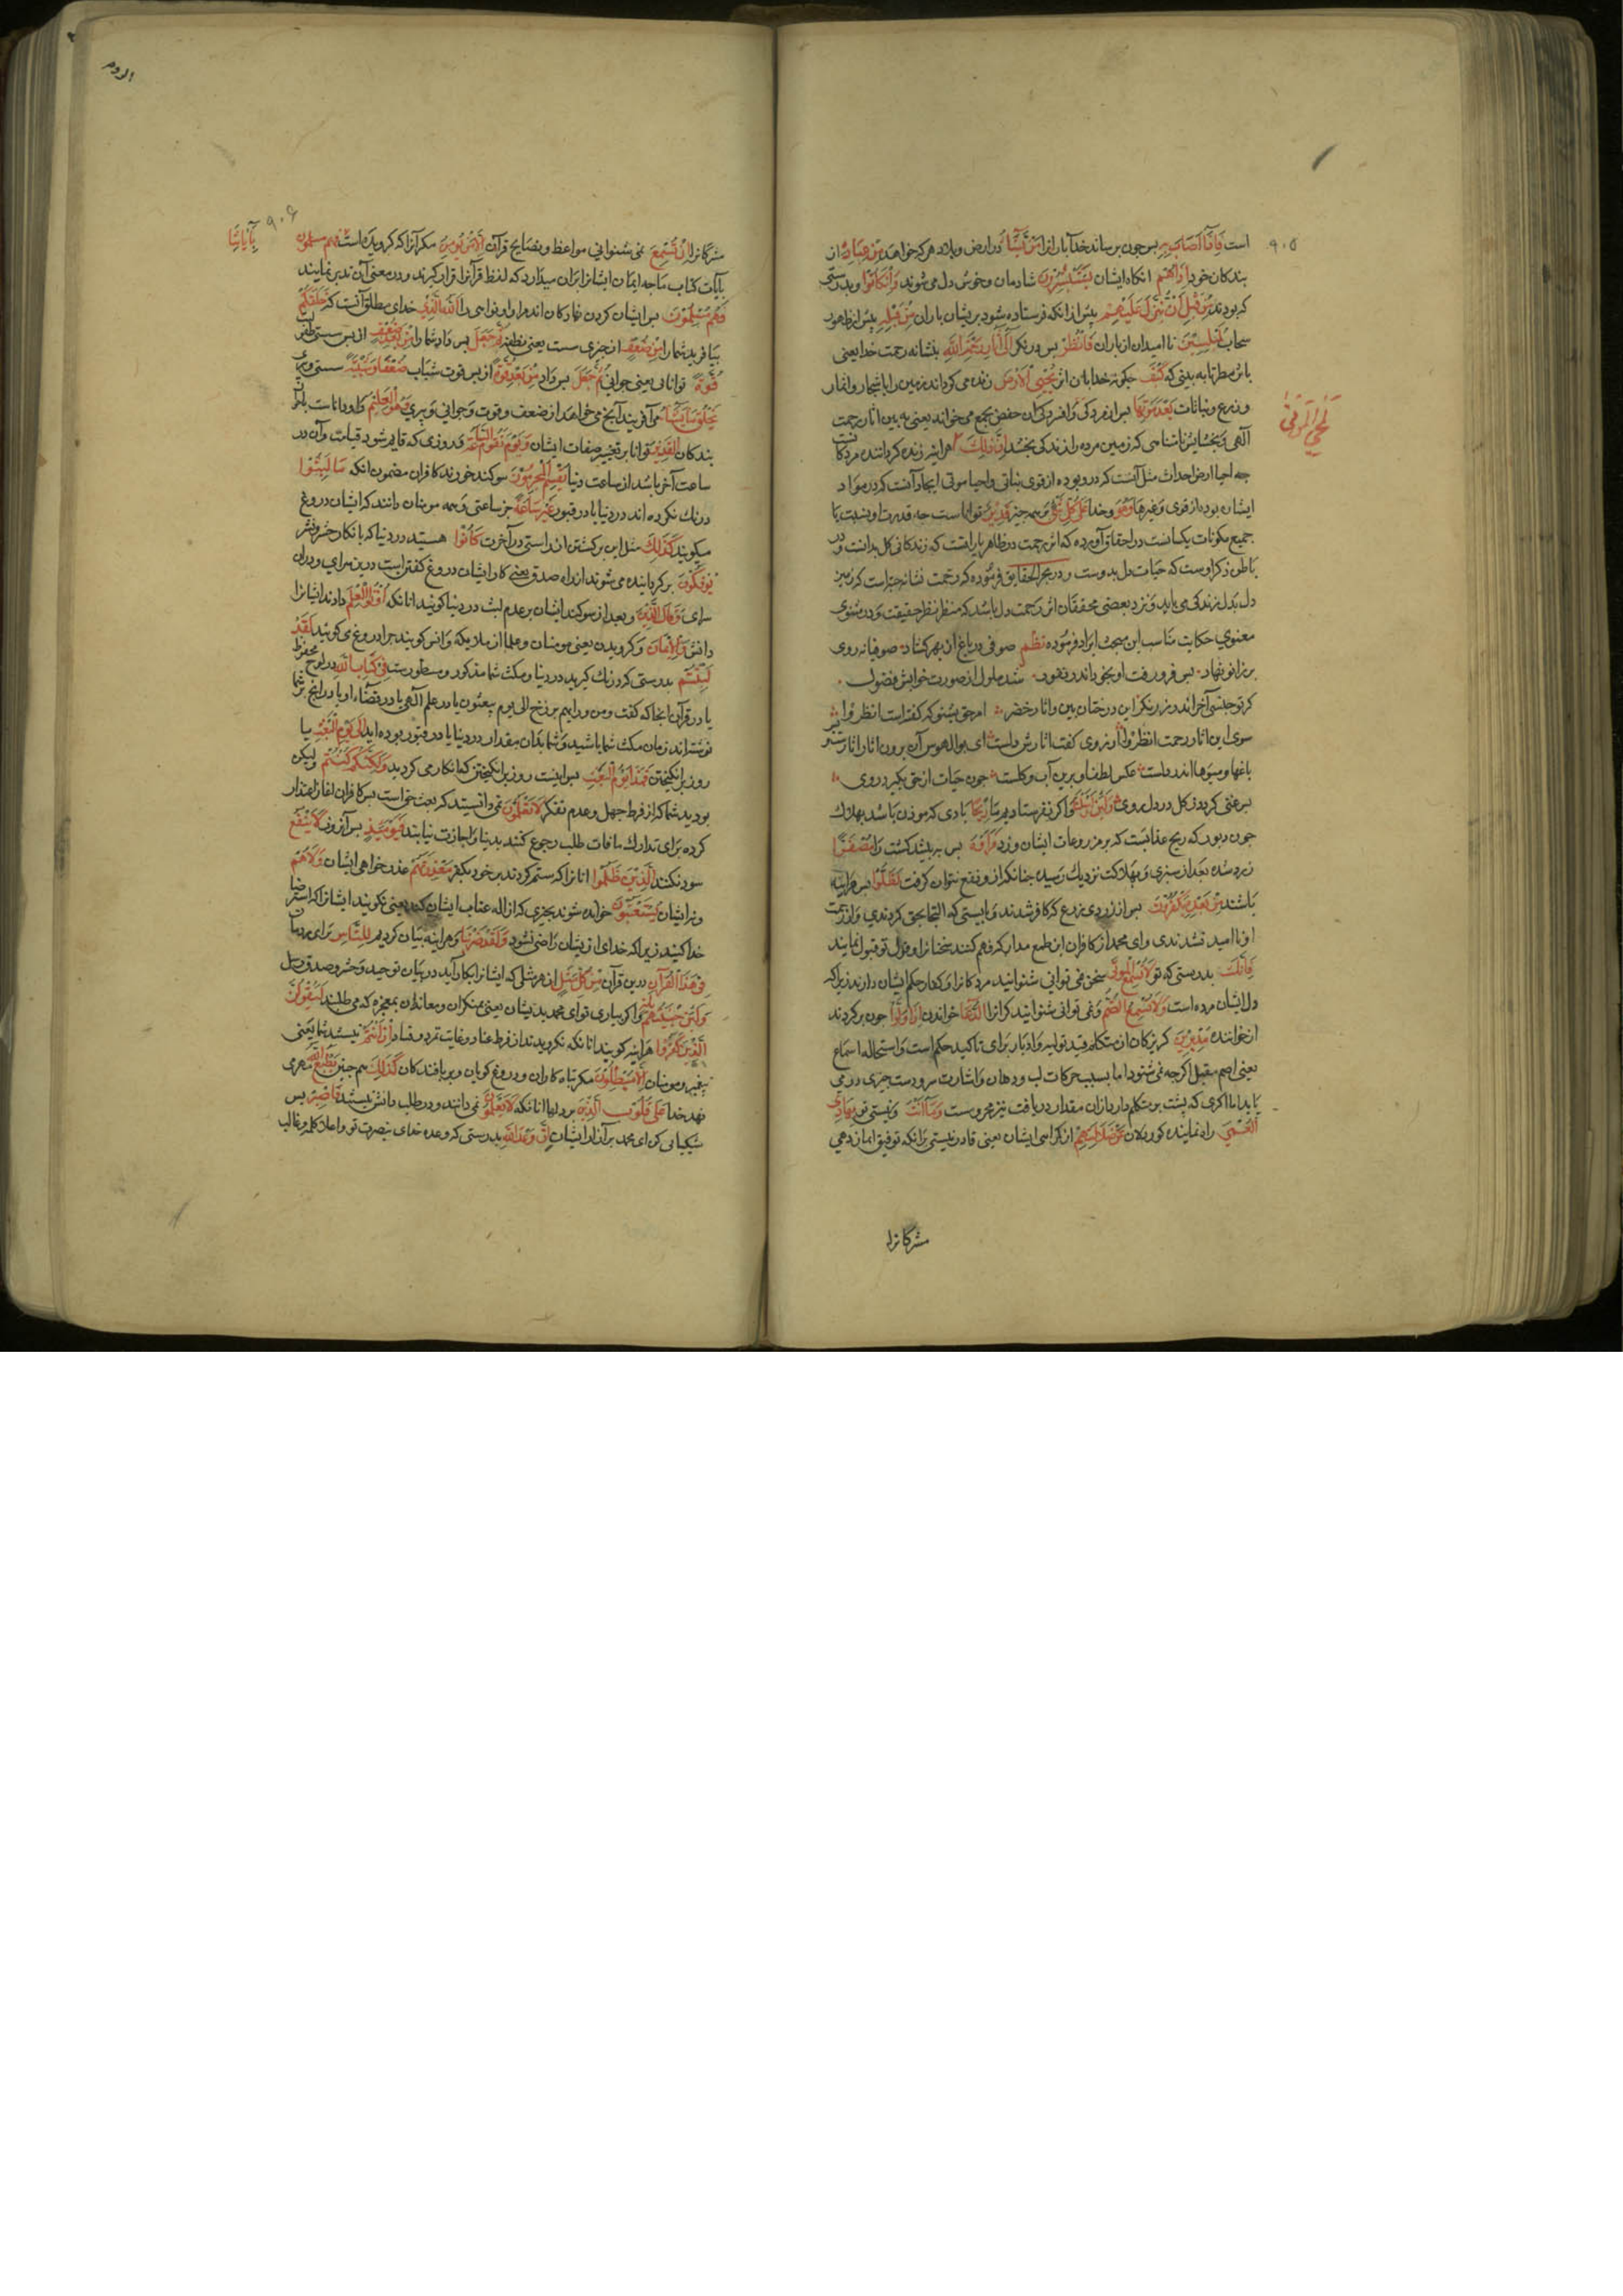 ۹۰۵
است فَاِذَا اَصَابَ بِهِ پس چون برساند خدا باران را مَنْ يَشَآءُ در اراضی و بلاد هر که خواهد مِنْ عِبَادِهٖ از
بندکان خود اِذَاهُمْ انکاه ایشان يَسْتَبْشِرُوْنَ شادمان و خوش دل می شوند وَاِنْ كَانُوْا و بدرستی
که بودند مِنْ قَبْلِ اَنْ يُنَزَّلَ عَلَيْهِمْ پیش از انکه فرستاده شود بریشان باران مِنْ قَبْلِهٖ پیش از ظهور
سحاب لَمُبْلِسِيْنَ نا امیدان از باران فَانْظُرْ پس درنکر اِلٰٓى اٰثَارِ رَحْمَةِ اللّٰهِ بنشانه رحمت خدا یعنی
كَيْفَ چکونه خدا بان اثر يُحْيِي الْاَرْضَ زنده می کرداند زمین را باشجار و اثمار
و زرع و نباتات بَعْدَ مَوْتِهَا پس از مردکی و افسردکی ان
لَمُحْيِي الْمَوْتٰى
آلهی که زمین مرده را زندکی بخشد اِنَّ ذٰلِكَ هر اینه زنده کرداننده مردکانست
چه احیا ارض احداث مثل آنست که درو بوده از قوی نباتی و احیا موتی ایجاد آنست که در مواد
ایشان بوده از قوی و غیرها وَهُوَ و خدا عَلٰى كُلِّ شَيْءٍ بر همه چیز قَدِيْرٌ تواناست چه قدرت او بنسبت با
جمیع مکونات یکسانست در احقاق آورده که اثر رحمت در ظاهر بارانست که زندکانی کل بدانست و در
باطن ذکر اوست که حیات دل بدوست و در بحر الحقایق فرموده که رحمت نشانه
دل بدل زندکی می یابد و نزد بعضی محققان اثر رحمت دل باشد که منظر نظر حقیقت و در مثنوی
معنوی حکایت مناسب این مبحث ایراد فرموده نظم صوفی در باغ از بهر کشاد صوفیانه روی
بر زانو نهاد پس فرو رفت او بخود اندر نغول شد ملول از صورت خوابش فضول
که چه خسبی آخر اندر رز نکر این درختان بین و اثار خضر امر حق بشنو که کفته است انظروا
سوی این اثار رحمت ار روی کفت اثارش دلست ای بوالهوس آن برون اثار اثارست
باغها و میوها اندر دلست عکس لطف او برین آب و کلست چون حیات از حق بکیرد روی
پس غنی کردد کل در دل روی وَلَئِنْ اَرْسَلْنَا و اکر بفرستادیم ما رِيْحًا بادی که موذن باشد بهلاک
چون دبور که ریح عذابست که بر مزروعات ایشان وزد فَرَاَوْهُ پس به بینند کشت را مُصْفَرًّا
زرد شده بعد از سبزی و بهلاکت نزدیک رسیده چنانکه از و نفع نتوان کرفت لَظَلُّوْا هر اینه
باشند مِنْ بَعْدِهٖ يَكْفُرُوْنَ پس از زردی زرع که کافر شدند و بایستی که التجا بحق کردندی و از رحمت
او نا امید نشدندی و ای محمد از کافران این طمع مدار که فهم کنند سخنان را و قول تو قبول نمایند
فَاِنَّكَ بدرستی که تو لَا تُسْمِعُ الْمَوْتٰى سخن نمی توانی شنوانید مردکان را و کفار حکم ایشان دارند زیرا که
دل ایشان مرده است وَلَا تُسْمِعُ الصُّمَّ و نمی توانی شنوانید کران را الدُّعَآءَ خواندن اِذَا وَلَّوْا چون برکردند
از خواننده مُدْبِرِيْنَ کریزکان از متکلم قید تولیه و ادبار برای تاکید حکم است و استحاله اسماع
یعنی اصم مقبل اکرچه نمی شنود اما بسبب حرکات لب و دهان و اشارت سر و دست چیزی در می
یابد اما کری که پشت بر متکلم دارد از ان مقدار دریافت نیز محروست وَمَآ اَنْتَ و نیستی تو بِهَادِ
الْعُمْيِ راه نماینده کوردلان عَنْ ضَلٰلَتِهِمْ از کمراهی ایشان یعنی قادر نیستی برانکه توفیق ایمان دهی
مشرکانرا
الروم
۹۰۶
مشرکانرا اِنْ تُسْمِعُ نمی شنوانی مواعظ و نصایح قرآن اِلَّا مَنْ يُؤْمِنُ مکر آنرا که کرویده است
بِاٰيَاتِنَا
بآیات کتاب ما چه ایمان ایشانرا بران میدارد که لفظ قرآنرا فرا کیرند و در معنی آن تدبر نمایند
فَهُمْ مُسْلِمُوْنَ پس ایشان کردن نهادکان اند اوامر و نواهی را اَللّٰهُ الَّذِيْ خدای مطلق آنست که خَلَقَكُمْ
بیافرید شما را مِنْ ضَعْفٍ از چیزی سست یعنی نطفه ثُمَّ جَعَلَ پس داد شما را مِنْ بَعْدِ ضَعْفٍ از پس سستی
قُوَّةً توانایی یعنی جوانی ثُمَّ جَعَلَ پس داد مِنْ بَعْدِ قُوَّةٍ از پس قوت شباب ضَعْفًا وَشَيْبَةً سستی و پیری
يَخْلُقُ مَا يَشَآءُ می آفریند آنچه می خواهد از ضعف و قوت و جوانی و پیری وَهُوَ الْعَلِيْمُ و او داناست
بندکان الْقَدِيْرُ توانا بر تغییر صفات ایشان وَيَوْمَ تَقُوْمُ السَّاعَةُ و روزی که قایم شود قیامت و آن در
ساعت آخر باشد از ساعت دنیا يُقْسِمُ الْمُجْرِمُوْنَ سوکند خورند کافران مضمون انکه مَا لَبِثُوْا
درنک نکرده اند در دنیا یا در قبور غَيْرَ سَاعَةٍ جز ساعتی و همه مومنان دانند که ایشان دروغ
میکویند كَذٰلِكَ مثل این برکشتن از راستی در آخرت كَانُوْا هستید در دنیا که بانکار حشر و نشر
يُؤْفَكُوْنَ برکردانیده می شوند از راه صدق یعنی کار ایشان دروغ کفتن است درین سرای و دران
سرای وَقَالَ الَّذِيْنَ و بعد از سوکند ایشان بر عدم لبث در دنیا کویند انانکه اُوْتُوا الْعِلْمَ داده اند ایشانرا
دانش وَالْاِيْمَانَ و کرویدن یعنی مومنان و علما از ملایکه و انس کویند چرا دروغ می کویید لَقَدْ
لَبِثْتُمْ بدرستی که درنک کردید در دنیا و مکث شما مذکور و مسطورست فِيْ كِتَابِ اللّٰهِ در لوح محفوظ
یا در قرآن انجا که کفت و من وراءهم برزخ الی یوم یبعثون یا در علم آلهی یا در قضاء او یا در انچه
نوشته اند زمان مکث شما باشید و شما بدان مقدار در دنیا یا در قبور بوده اید اِلٰى يَوْمِ الْبَعْثِ تا
روز برانکیختن فَهٰذَا يَوْمُ الْبَعْثِ پس اینست روز برانکیختن که انکار می کردید وَلٰكِنَّكُمْ كُنْتُمْ ولیکن
بودید شما که از فرط جهل و عدم تفکر لَا تَعْلَمُوْنَ نمی دانستید که بعث حق است پس کافران آغاز اعتذار
کرده برای تدارک ما فات طلب رجوع کنند بدنیا و اجازت نیابند فَيَوْمَئِذٍ پس آن روز لَا يَنْفَعُ
سود نکند الَّذِيْنَ ظَلَمُوْا انانرا که ستم کردند بر خود بکفر مَعْذِرَتُهُمْ عذر خواهی ایشان وَلَا هُمْ
و نه ایشان يُسْتَعْتَبُوْنَ خوانده شوند بچیزی که ازاله عتاب ایشان کند یعنی نکویند ایشانرا که استرضا
خدا کنید زیرا که خدای از یشان راضی نشود وَلَقَدْ ضَرَبْنَا و هر اینه بیان کردیم لِلنَّاسِ برای مردمان
فِيْ هٰذَا الْقُرْاٰنِ درین قرآن مِنْ كُلِّ مَثَلٍ از هر مثلی که ایشانرا بکار آید در بیان توحید و حشر و صدق رسل
وَلَئِنْ جِئْتَهُمْ و اکر بیاری تو ای محمد بدیشان یعنی بمنکران و معاندان بمعجزه که می طلبند لَيَقُوْلَنَّ
الَّذِيْنَ كَفَرُوْا هر اینه کویند انانکه نکرویدند از فرط عناد و غایت تمرد و فساد اِنْ اَنْتُمْ نیستید شما یعنی
پیغمبر و مومنان اِلَّا مُبْطِلُوْنَ مکر تباه کاران و دروغ کویان و بربافندکان كَذٰلِكَ همچنین يَطْبَعُ اللّٰهُ مهر می
نهد خدا عَلٰى قُلُوْبِ الَّذِيْنَ بر دلها انانکه لَا يَعْلَمُوْنَ نمی دانند و در طلب دانش نیستند فَاصْبِرْ پس
شکیبایی کن ای محمد بر آزار ایشان اِنَّ وَعْدَ اللّٰهِ بدرستی که وعده خدای بنصرت تو و اعلا کلمه و غالب